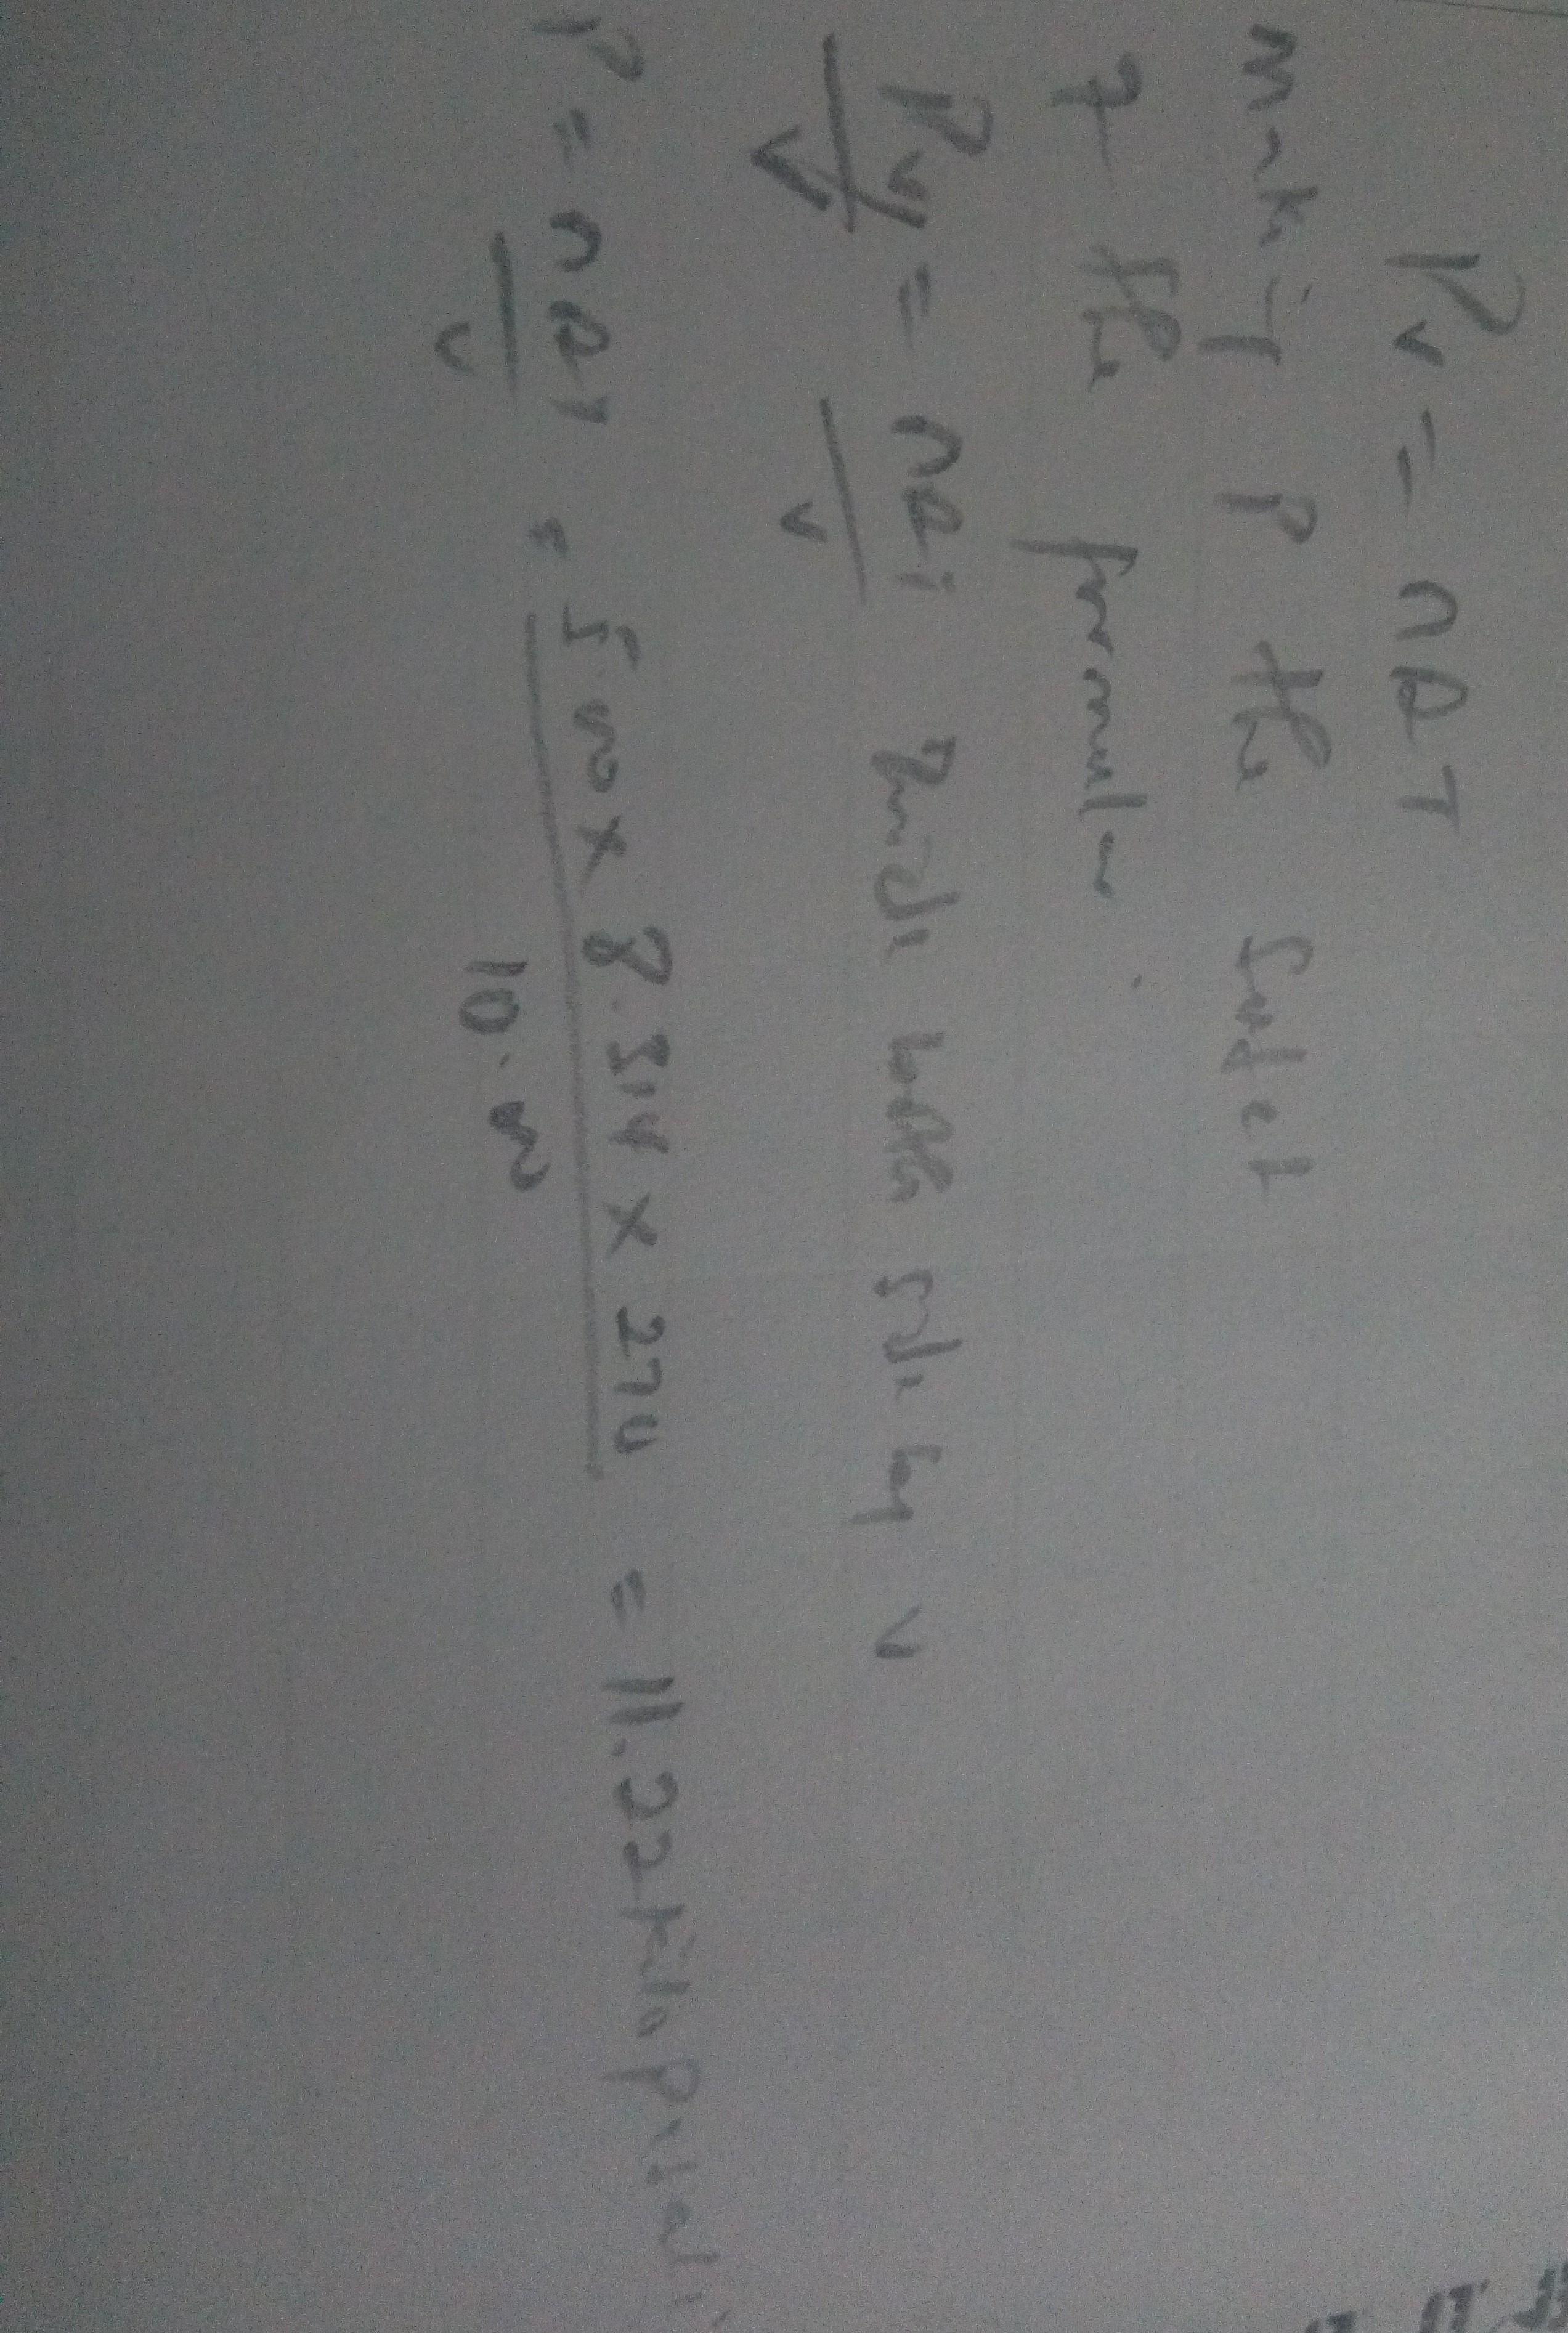 Pv = nRT
making P the subject
of the formula.
Pv/v = nRT/v Divide both side by v
P = nRT/v = 5.00 x 8.314 x 270/10.00 = 11.22 kilopascal